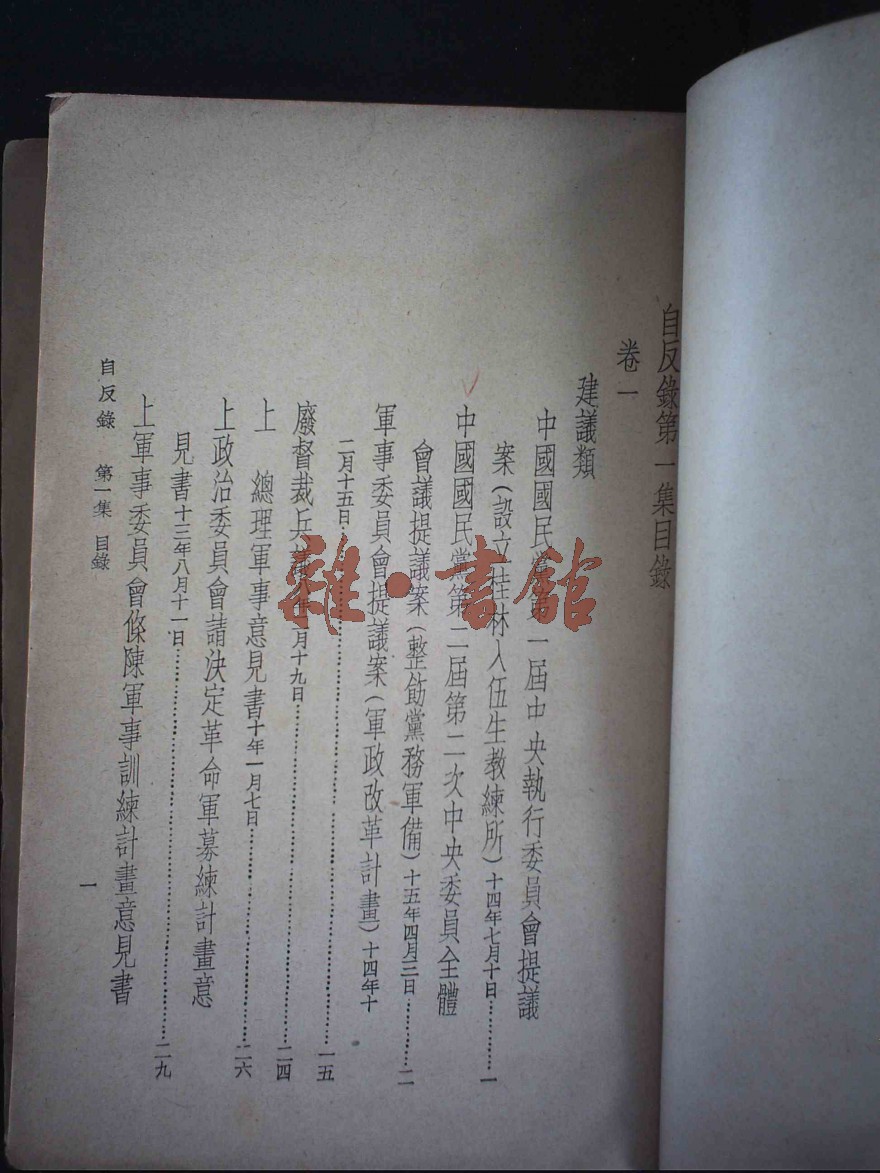 自反錄第一集目錄
卷一
建議類
中國國民黨第一屆中央執行委員會提議
案（設立桂林入伍生教練所）十四年七月十日…………一
中國國民黨第二屆第二次中央委員全體
會議提議案（整飭黨務軍備）十五年四月三日…………二
軍事委員會提議案（軍政改革計畫）十四年十
二月十五日…………一五
廢督裁兵議 月十九日…………二四
上 總理軍事意見書十年一月七日…………二六
上政治委員會請決定革命軍募練計畫意
見書十三年八月十一日…………二九
上軍事委員會條陳軍事訓練計畫意見書
自反錄 第一集 目錄
一
雜·書館